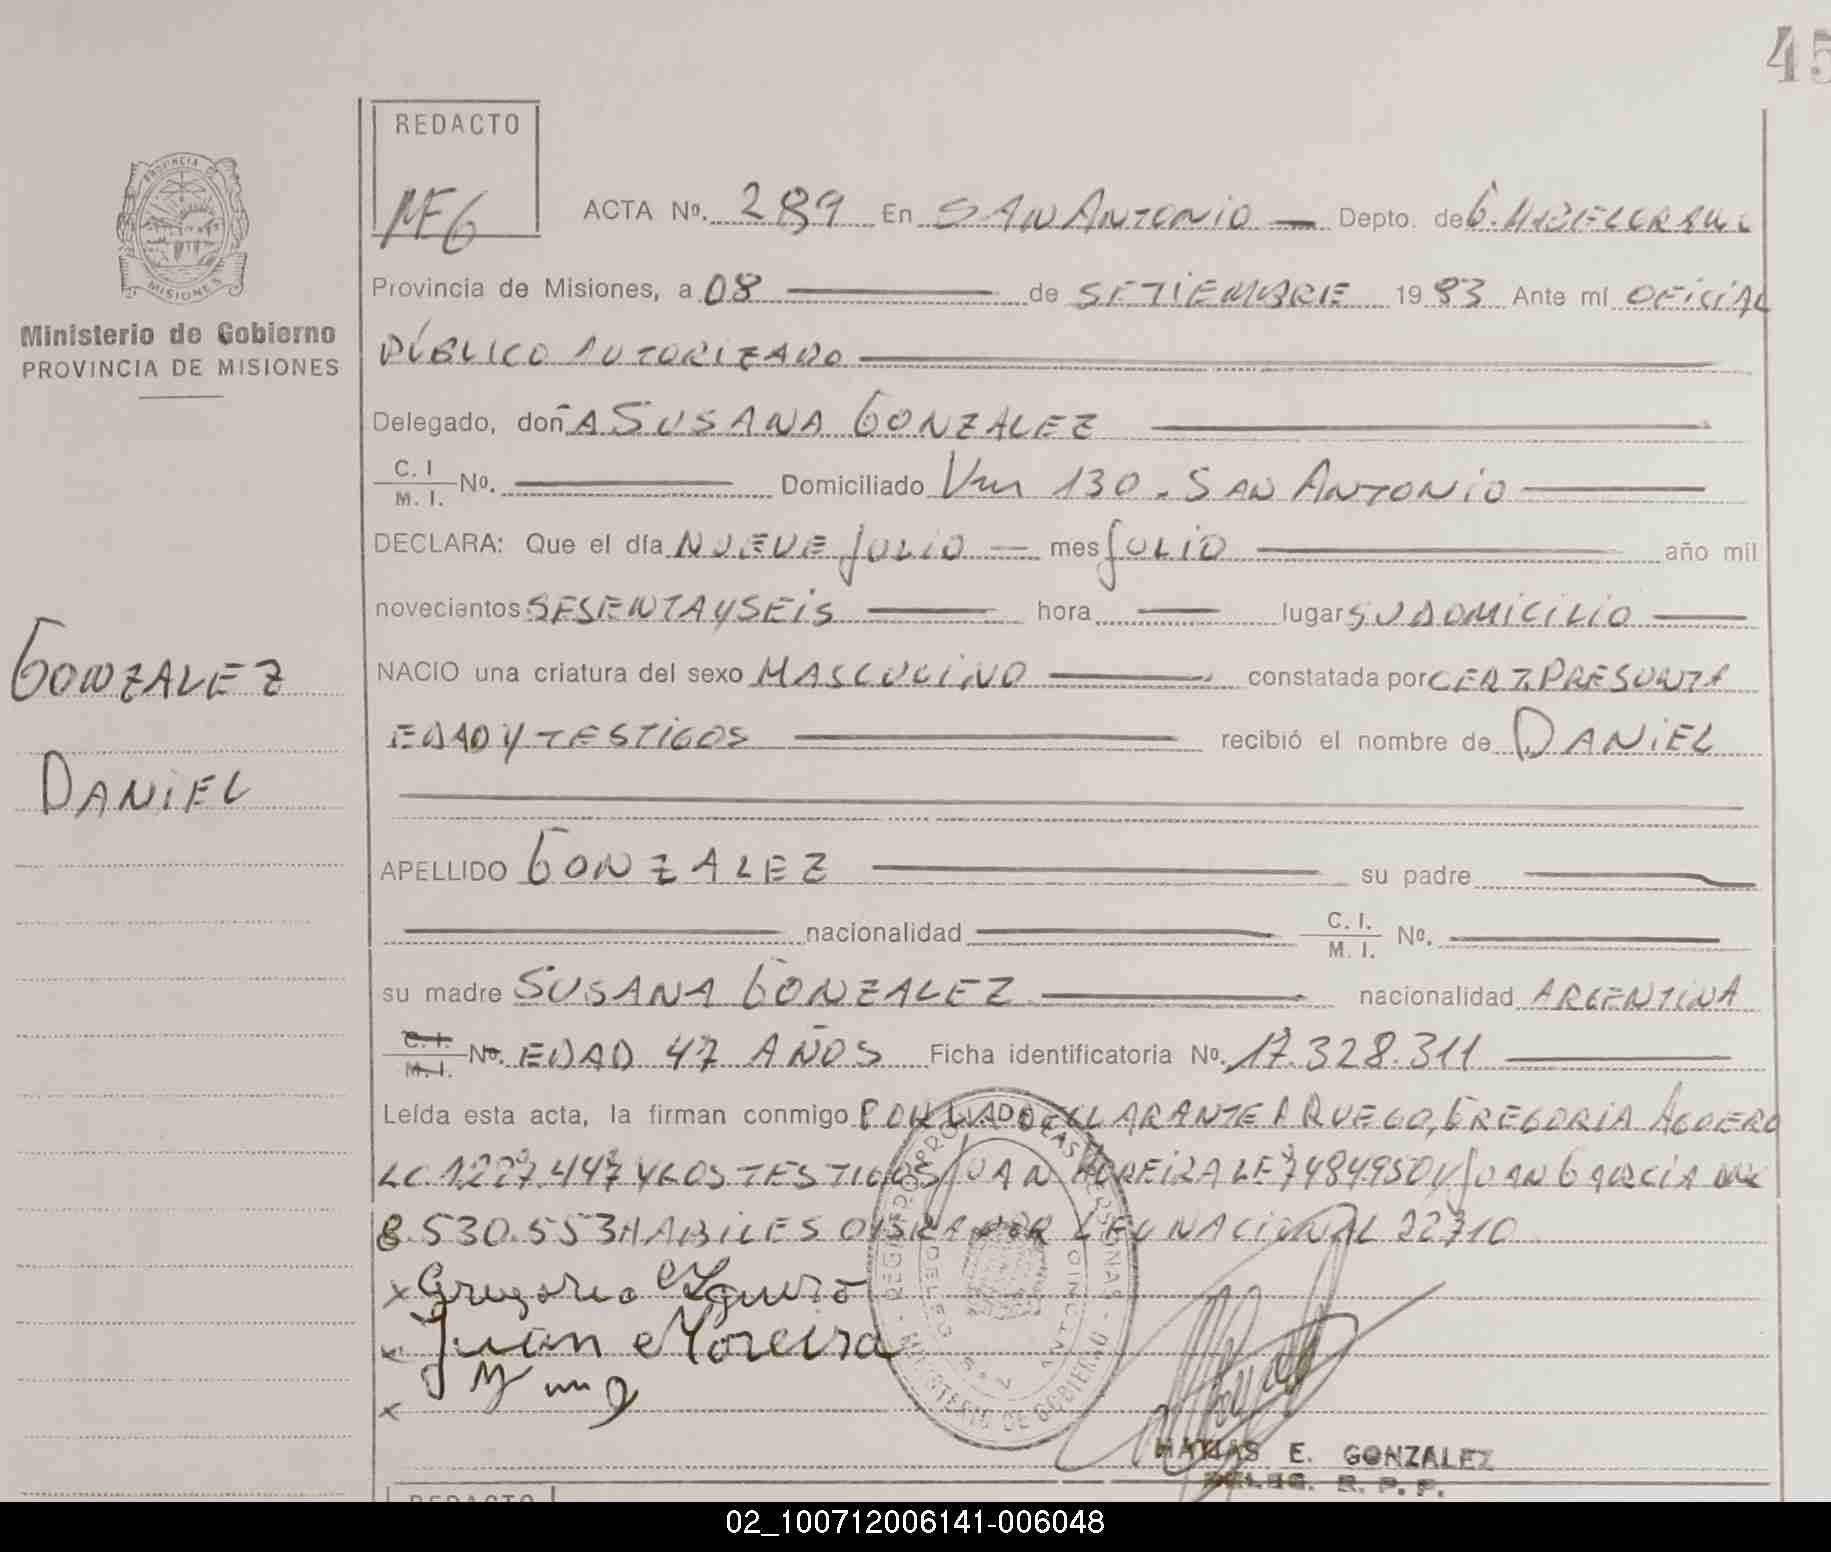 45
REDACTO
MFG
PROVINCIA DE
MISIONES
Ministerio de Gobierno
PROVINCIA DE MISIONES
GONZALEZ
DANIEL
ACTA Nº. 289 En SAN ANTONIO — Depto. de G. M. BELGRANO
Provincia de Misiones, a 08 — de SETIEMBRE 1983 Ante mi OFICIAL
PÚBLICO AUTORIZADO
Delegado, doñA SUSANA GONZALEZ
C. I / M. I. Nº. — Domiciliado Km 130. SAN ANTONIO
DECLARA: Que el día NUEVE JULIO — mes JULIO — año mil
novecientos SESENTA Y SEIS — hora — lugar SU DOMICILIO
NACIO una criatura del sexo MASCULINO — constatada por CERT. PRESUNTA
EDAD Y TESTIGOS — recibió el nombre de DANIEL
APELLIDO GONZALEZ — su padre —
— nacionalidad — C. I. / M. I. Nº. —
su madre SUSANA GONZALEZ — nacionalidad ARGENTINA
C. I. / M. I. Nº. EDAD 47 AÑOS Ficha identificatoria Nº. 17.328.311
Leída esta acta, la firman conmigo POR LA DECLARANTE A RUEGO, GREGORIA AGUERO
LC. 1.227.447 Y LOS TESTIGOS JUAN MOREIRA LE 7484950 Y JUAN GARCIA
8.530.553 HABILES OBRA POR LEY NACIONAL 22710
x Gregorio Aguero
x Juan Moreira
x
REGISTRO PROV. DE LAS PERSONAS
MINISTERIO DE GOBIERNO
MATIAS E. GONZALEZ
DELEG. R. P. P.
REDACTO
02_100712006141-006048